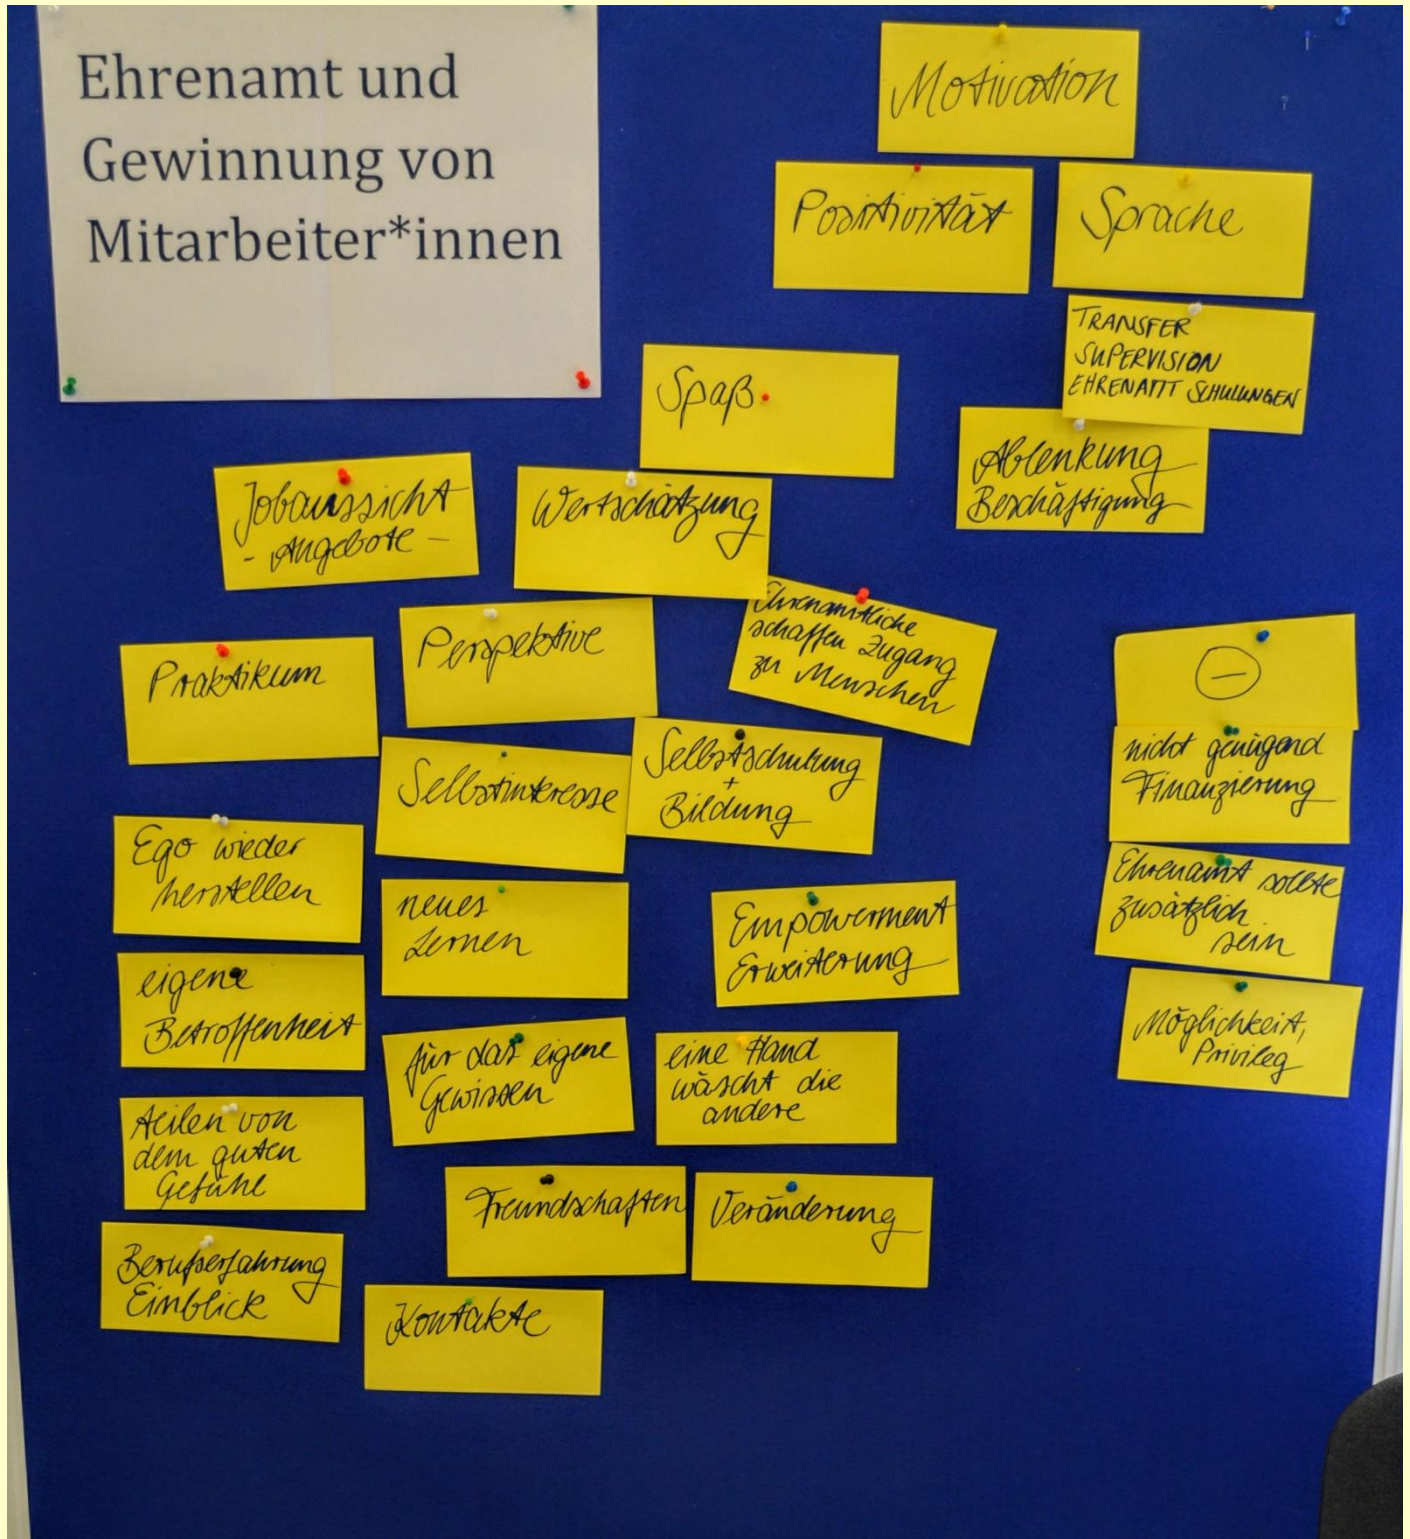 Ehrenamt und
Gewinnung von
Mitarbeiter*innen
Motivation
Positivität
Sprache
TRANSFER
SUPERVISION
EHRENAMT SCHULUNGEN
Spaß
Ablenkung
Beschäftigung
Jobaussicht
- Angebote -
Wertschätzung
Ehrenamtliche
schaffen Zugang
zu Menschen
Praktikum
Perspektive
Selbstinteresse
Selbstschulung
+
Bildung
Ego wieder
herstellen
neues
Lernen
Empowerment
Erweiterung
eigene
Betroffenheit
für das eigene
Gewissen
eine Hand
wäscht die
andere
teilen von
dem guten
Gefühl
Freundschaften
Veränderung
Berufserfahrung
Einblick
Kontakte
−
nicht genügend
Finanzierung
Ehrenamt sollte
zusätzlich
sein
Möglichkeit,
Privileg